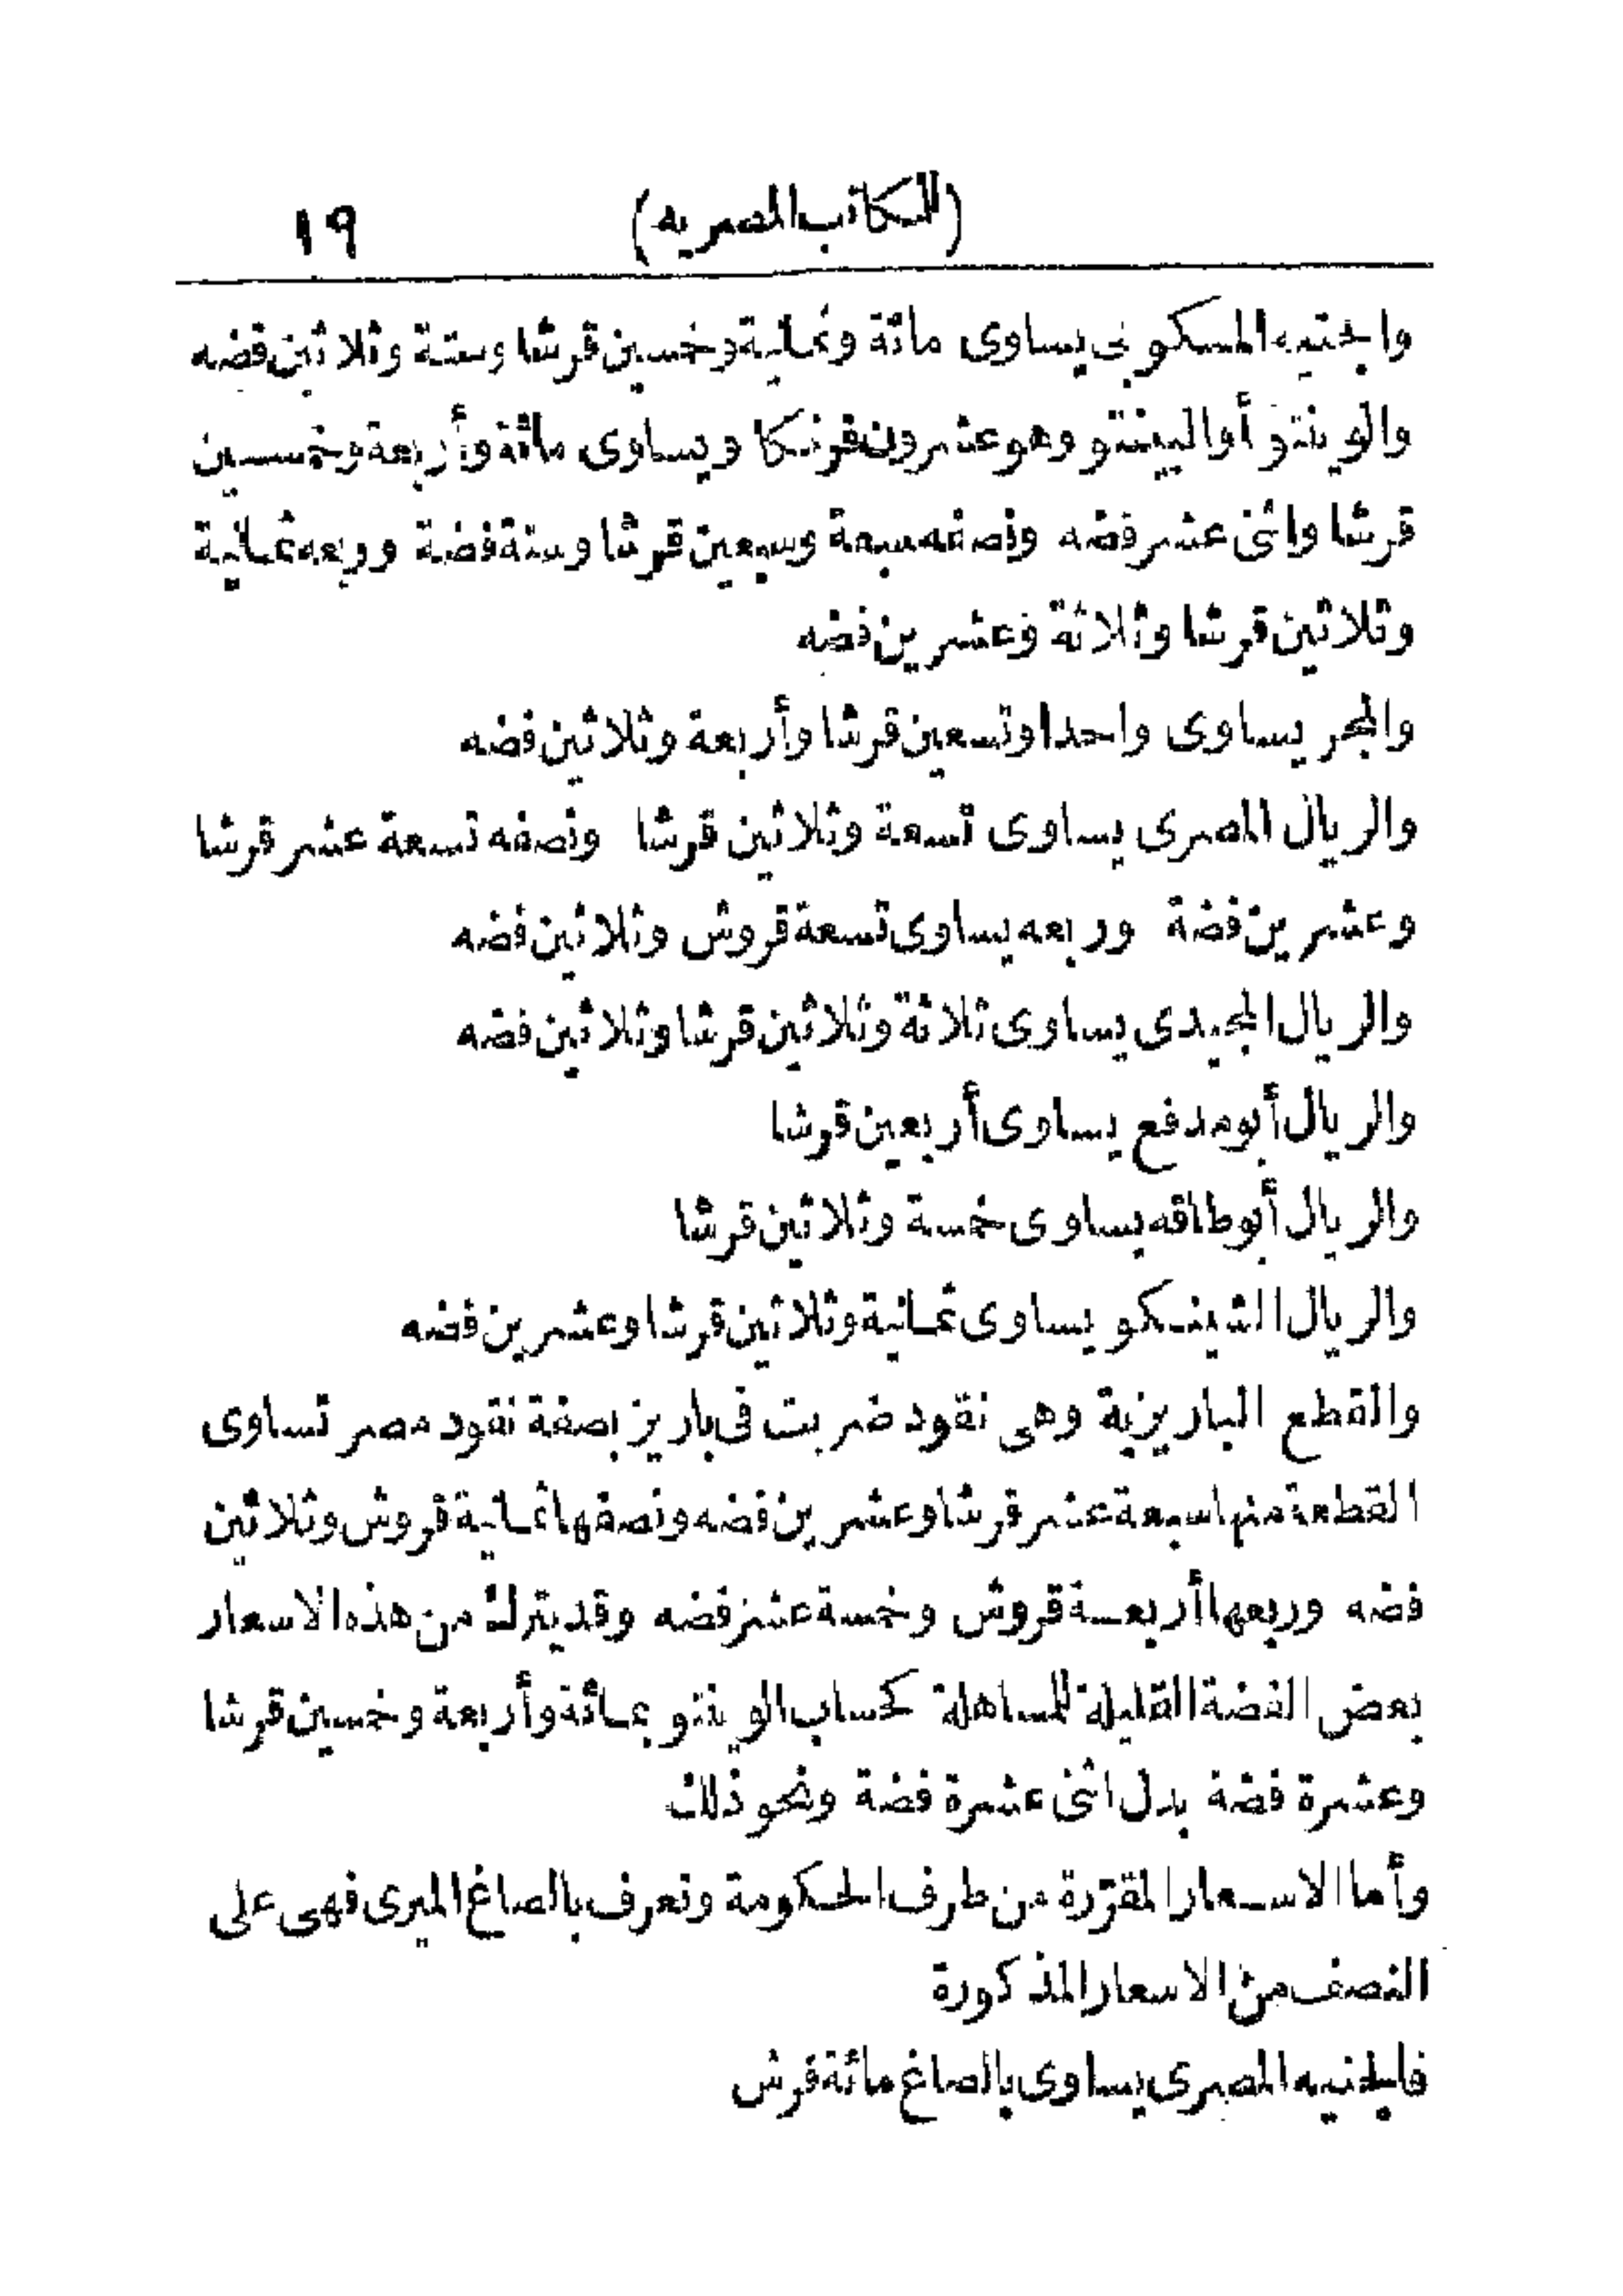 (للمكاتب المصريه) ١٩
والجنيه المسكوبى يساوى مائة وثمانية وخمسين قرشا وستة وثلاثين فضه
والوينتو أو البينتو وهو عشرون فرنكا ويساوى مائة وأربعة وخمسين
قرشا واثنى عشر فضه ونصفه سبعة وسبعين قرشا وستة فضة وربعه ثمانية
وثلاثين قرشا وثلاثة وعشرين فضه
والمجر يساوى واحدا وتسعين قرشا وأربعة وثلاثين فضه
والريال المصرى يساوى تسعة وثلاثين قرشا ونصفه تسعة عشر قرشا
وعشرين فضة وربعه يساوى تسعة قروش وثلاثين فضه
والريال المجيدى يساوى ثلاثة وثلاثين قرشا وثلاثين فضه
والريال أبو مدفع يساوى أربعين قرشا
والريال أبو طاقه يساوى خمسة وثلاثين قرشا
والريال الشينكو يساوى ثمانية وثلاثين قرشا وعشرين فضه
والقطع الباريزية وهى نقود ضربت فى باريز بصفة نقود مصر تساوى
القطعة منها سبعة عشر قرشا وعشرين فضه ونصفها ثمانية قروش وثلاثين
فضه وربعها أربعة قروش وخمسة عشر فضه وقد يترك من هذه الاسعار
بعض الفضة القليلة للمساهلة كحساب الوينتو بمائة وأربعة وخمسين قرشا
وعشرة فضة بدل اثنى عشرة فضة ونحو ذلك
وأما الاسعار المقرّرة من طرف الحكومة وتعرف بالصاغ الميرى فهى على
النصف من الاسعار المذكورة
فالجنيه المصرى يساوى بالصاغ مائة قرش